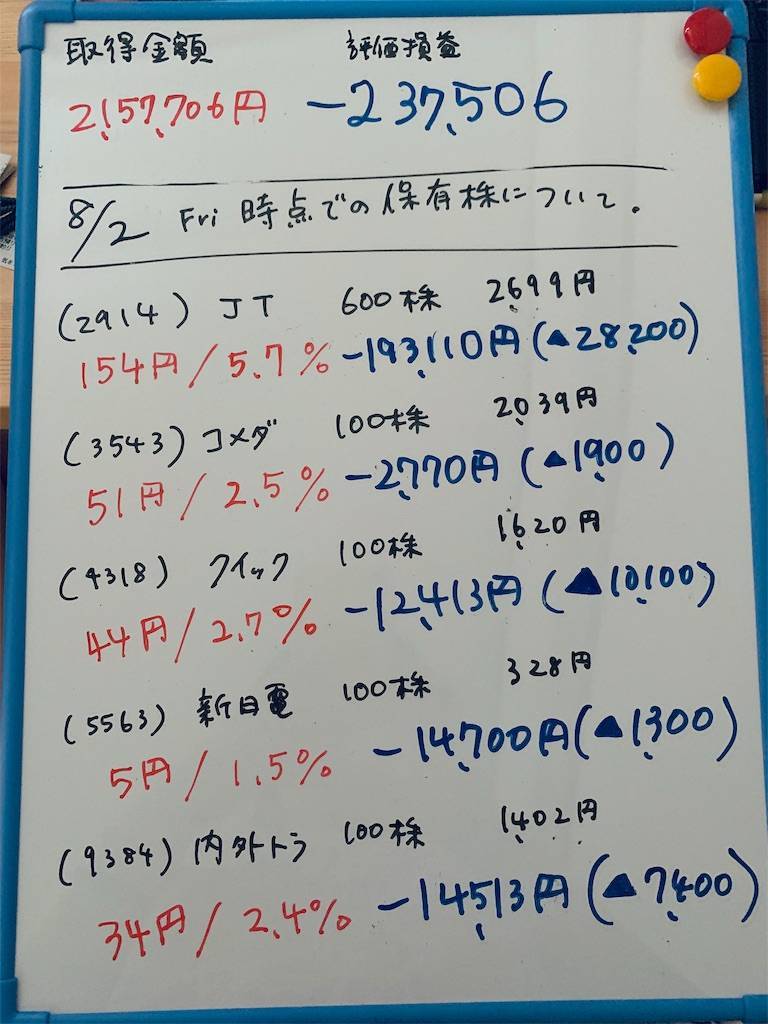 取得金額 評価損益
2,157,706円 -237,506
8/2 Fri 時点での保有株について。
(2914) JT 600株 2699円
154円/5.7% -193,110円(▲28,200)
(3543) コメダ 100株 2,039円
51円/2.5% -2,770円(▲1,900)
(4318) クイック 100株 1,620円
44円/2.7% -12,413円(▲10,100)
(5563) 新日電 100株 328円
5円/1.5% -14,700円(▲1,300)
(9384) 内外トラ 100株 1,402円
34円/2.4% -14,513円(▲7,400)